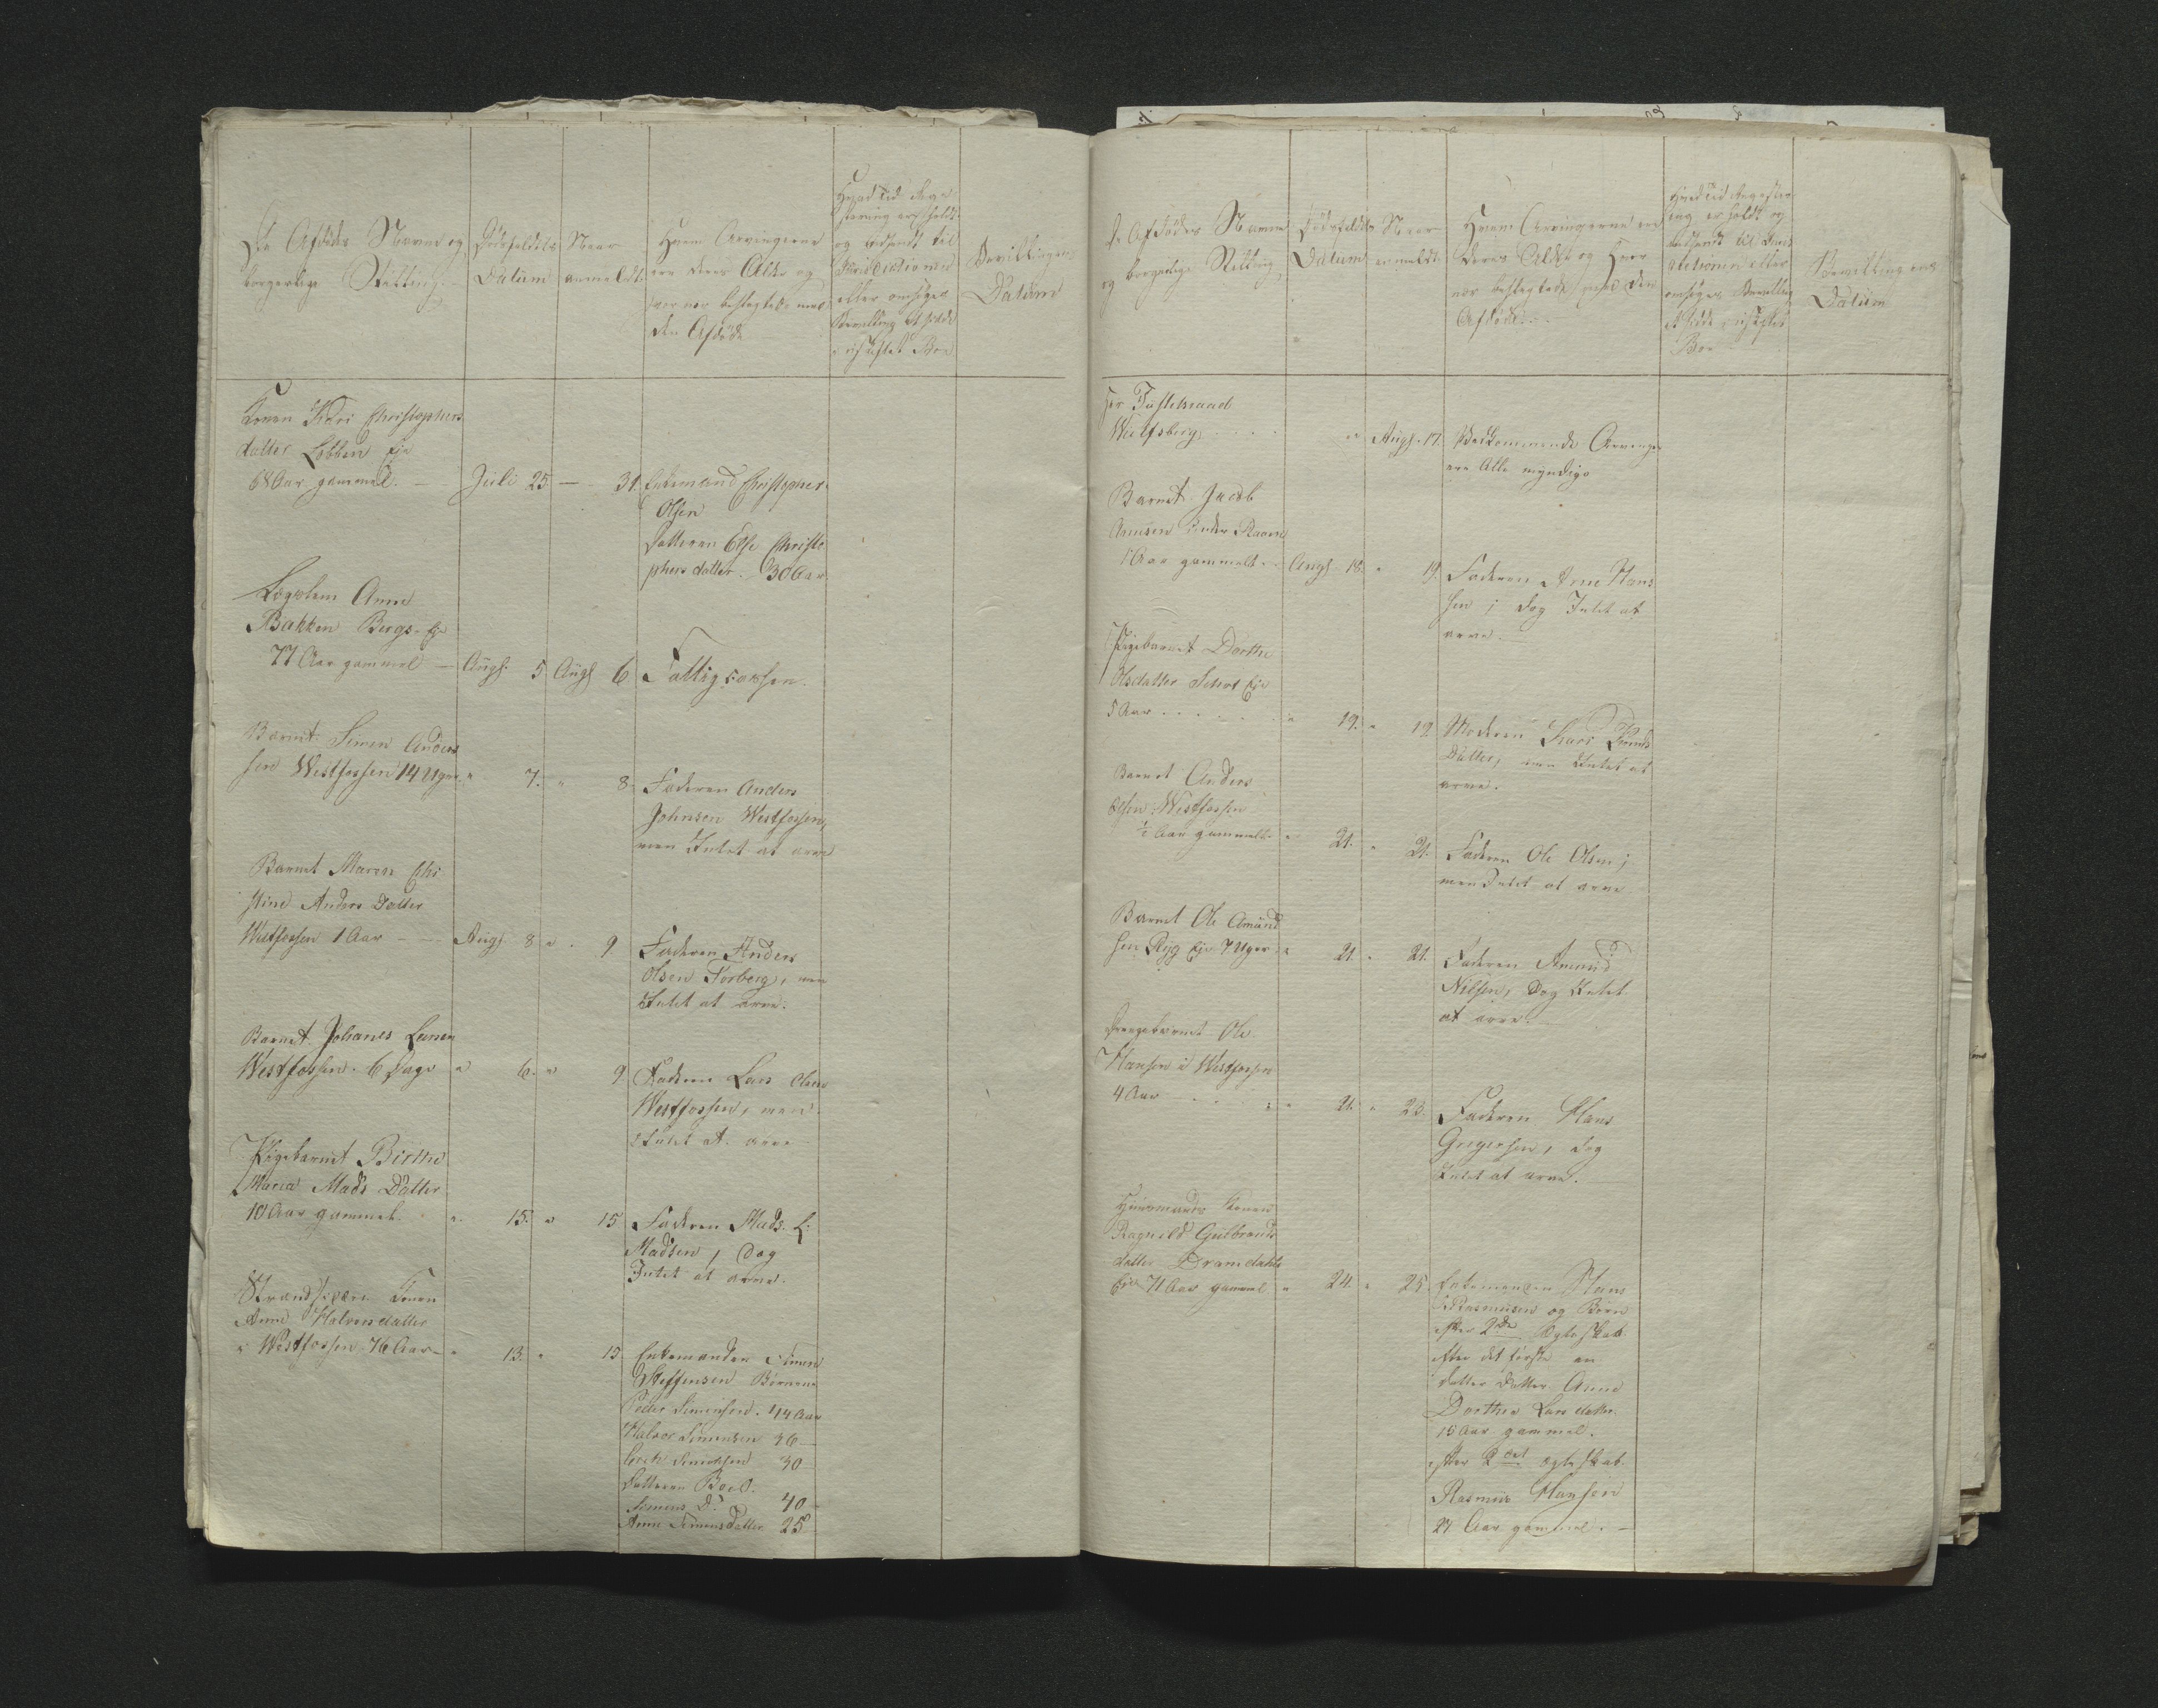 De Afdødes Navne og
borgerlige Stilling.
Dødsfaldets
Datum
Naar
anmeldt
Hvem Arvingerne
ere deres Alder og
hvor nær beslægtede med
den Afdøde
Hvad Tid Regi-
strering er holdt
og udsendt til
Jurisdictionen
eller ansøges
Bevilling at sidde
i uskiftet Boe
Bevillingens
Datum
Konen Kari Christophers
datter Lobben Eje
68 Aar gammel. — Juli 25. — 31. Enkemand Christopher
Olsen
Datteren Else Christo
phersdatter. 30 Aar
Logslem Anne
Bakken Bergs Eje
77 Aar gammel — Augs. 5 Augs 6 Fattig
Barnet Simen Anders
sen Westfossen 14 Uger " 7. " 8. Faderen Anders
Johnsen Westfossen,
men Intet at arve
Barnet Maren Chri
stine Anders Datter
Westfossen 1 Aar — Augs 8 " . 9 Faderen Anders
Olsen Torberg, men
Intet at arve.
Barnet Johanes Larsen
Westfossen. 6 Dage " 6. " 9 Faderen Lars Olsen
Westfossen, men
Intet at arve
Pigebarnet Birthe
Maria Mads Datter
10 Aar gammel. " 15. " 15 Faderen Mads L:
Madsen, Dog
Intet at arve.
Konen
Anne Halvorsdatter
i Westfossen 76 Aar — " 13. " 15. Enkemanden Simen
Steffensen Børnene
Peder Simensen. 44 Aar
Halvor Simensen 36 —
Erich Simensen 30 —
Datteren Boel
Simens D. 40 —
Anne Simensdatter 25
De Afdødes Navne
og borgerlige Stilling
Dødsfaldets
Datum
Naar
anmeldt
Hvem Arvingerne ere
deres Alder og hvor
nær beslægtede med den
Afdøde
Hvad Tid Registrer
ing er holdt og
udsendt til Juris
dictionen eller
ansøges Bevilling
at sidde i uskiftet
Boe
Bevillingens
Datum
Hr
" Augs. 17. Vedkommende Arvinger
ere Alle myndige
Barnet Jacob
Arnesen
1 Aar gammelt. Augs 18. " 19. Faderen Arne Hans
sen; dog Intet at
arve.
Pigebarnet Dorthe
Olsdatter Eje
5 Aar . . . . " 19. " 19 Moderen Kari
Datter, men Intet at
arve.
Barnet Anders
Olsen Westfossen
½ Aar gammelt " 21. " 21. Faderen Ole Olsen;
men Intet at arve
Barnet Ole Amund
sen Ryg Eje 7 Uger " 21. " 21. Faderen Amund
Nilsen, Dog Intet
at arve.
Drengebarnet Ole
Hansen i Westfossen
4 Aar — . . " 21. " 23. Faderen Hans
Gregersen, dog
Intet at arve.
Huusmands Konen
Ragnild Gulbrands
datter Dramdahls
Eje 71 Aar gammel " 24. " 25 Enkemanden Hans
Rasmusen og Børn
efter 2de Egteskab
efter det første en
Datter Datter Anne
Dorthea Larsdatter
15 Aar gammel.
efter 2det Egteskab
Rasmus Hansen
27 Aar gammel. —